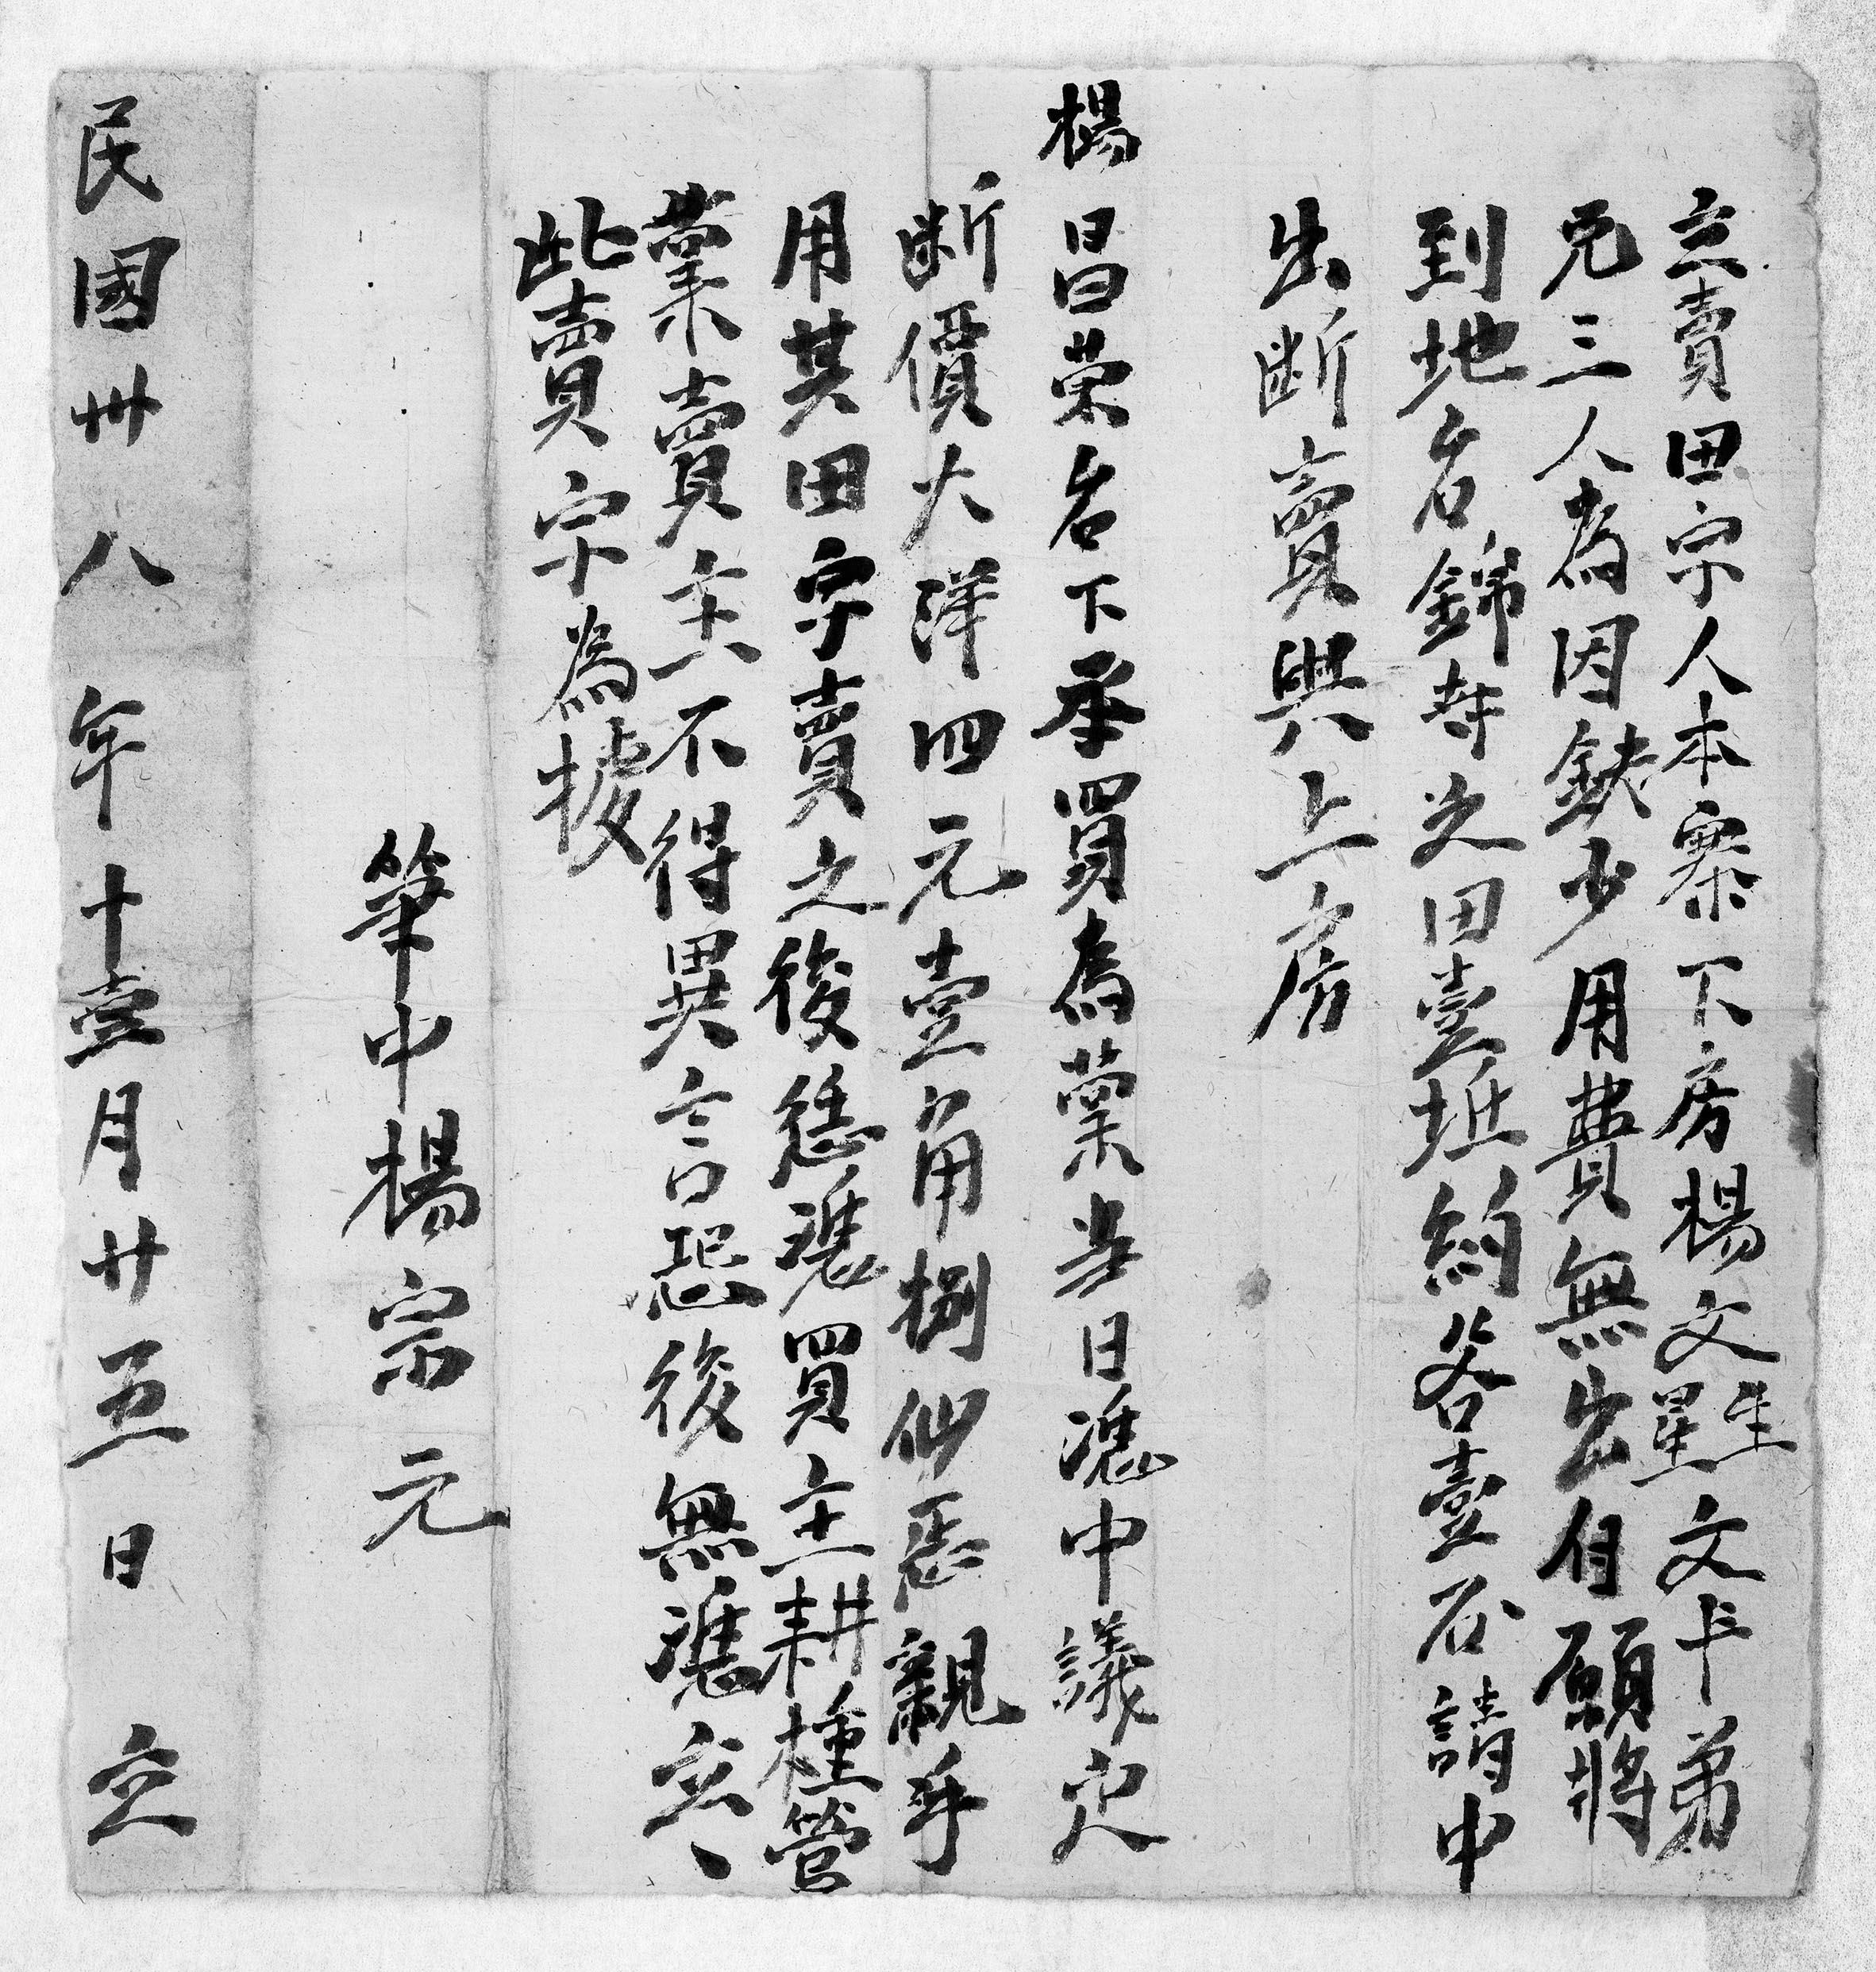 立賣田字人本寨下房楊文星生文卡弟
兄三人為因缺少用費無出自願將
到地名錦封之田壹坵約谷壹石請中
出断賣與上房
楊昌荣名下承買為業当日憑中議定
断價大洋四元壹角捌仙忢親手
用其田字賣之後恁憑買主耕種管
業賣主不得異言恐後無憑立、
此賣字為據
筆中楊宗元
民國卅八年十壹月廿五日立